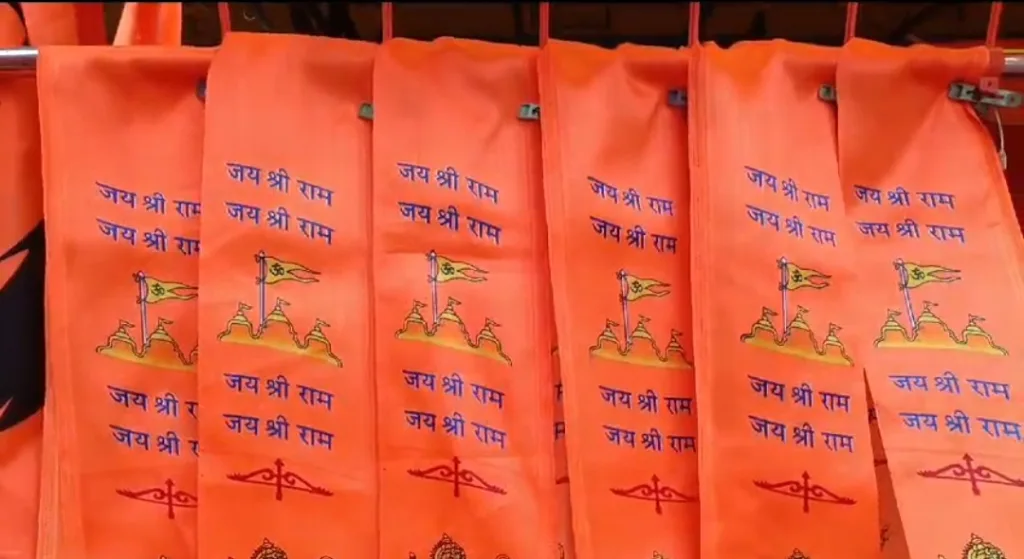 जय श्री राम
जय श्री राम
ॐ
जय श्री
जय श्री
जय श्री राम
जय श्री राम
ॐ
जय श्री राम
जय श्री राम
जय श्री राम
जय श्री राम
ॐ
जय श्री राम
जय श्री राम
जय श्री राम
जय श्री राम
ॐ
जय श्री राम
जय श्री राम
जय श्री राम
जय श्री राम
ॐ
जय श्री राम
जय श्री राम
जय श्री राम
जय श्री राम
ॐ
जय श्री राम
जय श्री राम